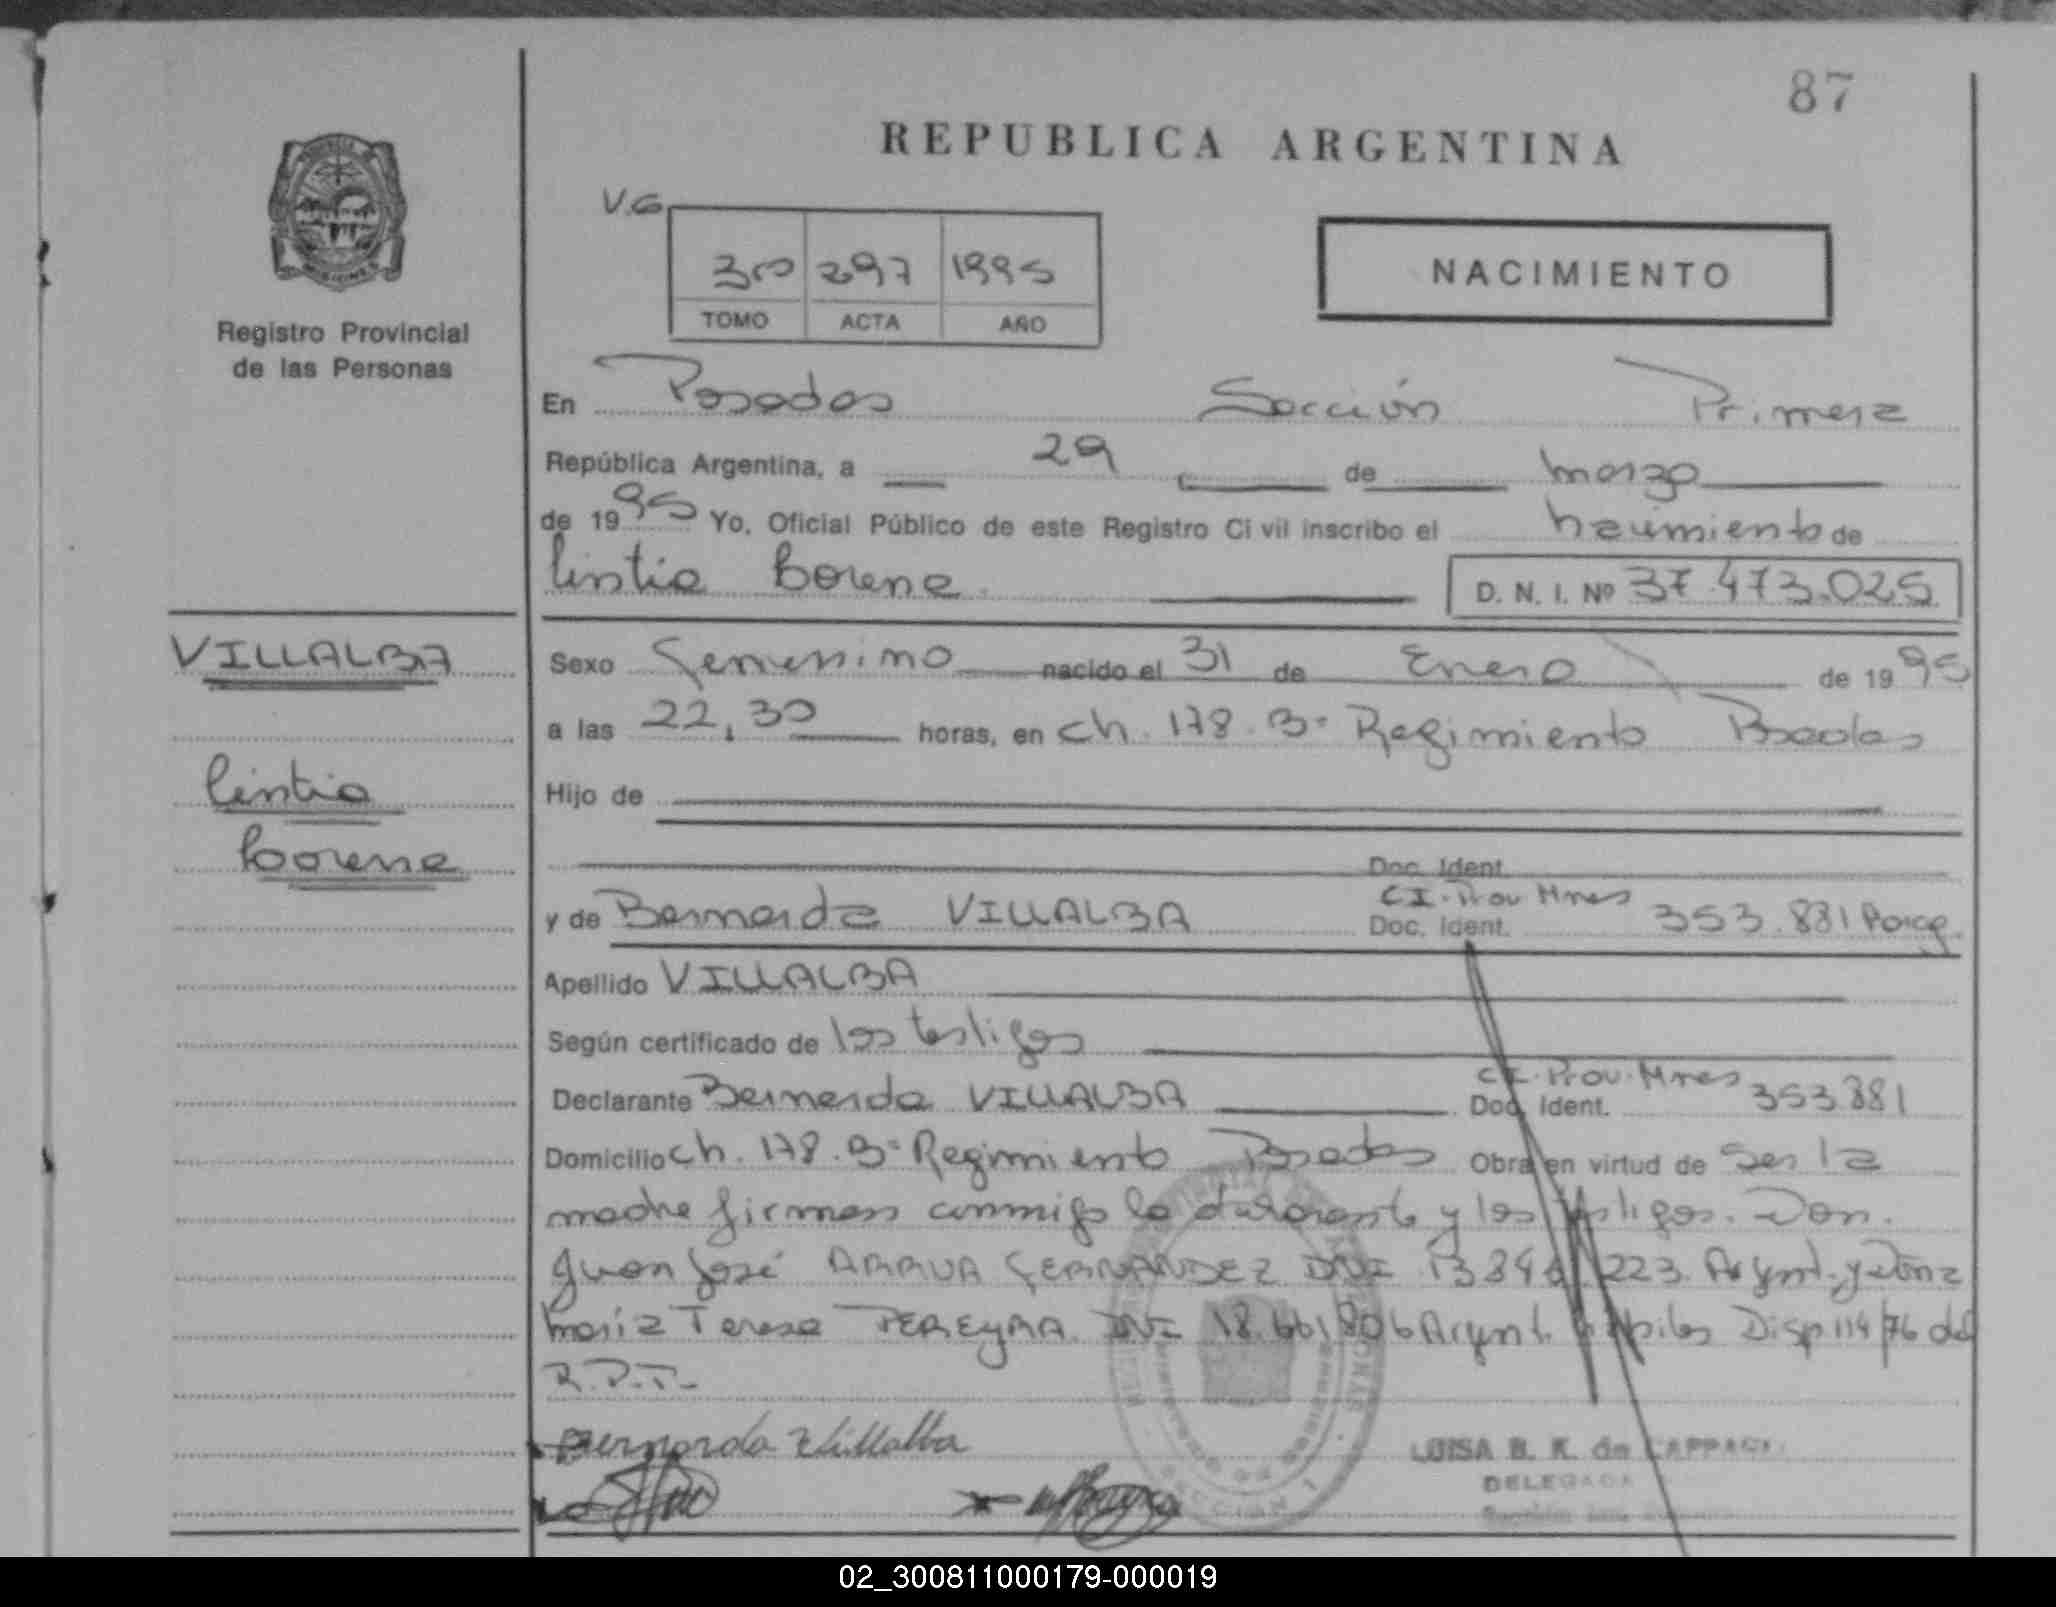 87
REPUBLICA ARGENTINA
V.G
297 1995
TOMO ACTA AÑO
NACIMIENTO
Registro Provincial
de las Personas
En Posadas Sección Primera
República Argentina, a 29 de marzo
de 1995 Yo, Oficial Público de este Registro Civil inscribo el nacimiento de
Lorena
D. N. I. Nº 37.473.025
VILLALBA
Lorena
Sexo Femenino nacido el 31 de Enero de 1995
a las 22,30 horas, en Ch. 178. Bº Regimiento Posadas
Hijo de
Doc. Ident.
y de Bernarda VILLALBA Doc. Ident. CI. Prov. Mnes 353.881
Apellido VILLALBA
Según certificado de los testigos
Declarante Bernarda VILLALBA Doc. Ident. CI. Prov. Mnes 353.881
Domicilio Ch. 178. Bº Regimiento Posadas Obra en virtud de ser la
madre firman conmigo la declarante y los testigos. Don.
Juan José FERNANDEZ DNI 223. Argent. y Doña
María Teresa PEREYRA DNI 18.661.806 Argent. Disp. 114/76 del
R.P.P.
Bernarda Villalba
LUISA B. K. de CAPPACI
DELEGADA
02_300811000179-000019